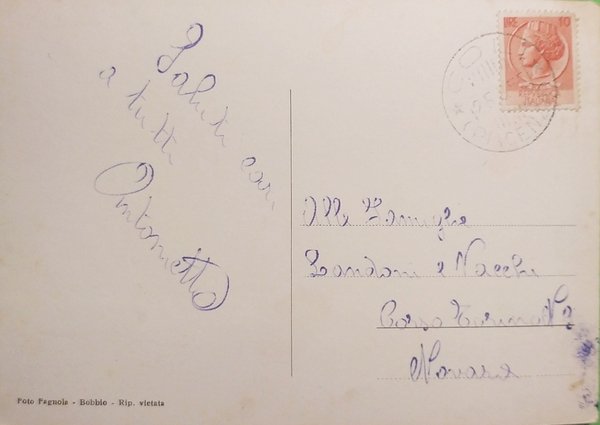 Saluti cari
a tutti
Antonietta
LIRE 10
ITALIANA
(PIACENZA)
Alla Famiglia
Zandoni e Nacchi
Corso Torino N 2
Novara
Foto Fagnola - Bobbio - Rip. vietata